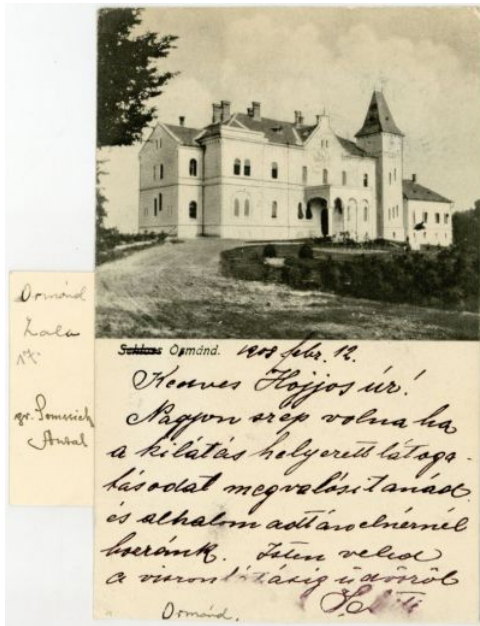 Ormánd
Zala
gr. Somssich
Antal
Schloss Ormánd. 1908 febr. 12.
Kedves Hojjos úr!
Nagyon szep volna ha
a kilátás helyett látoga-
tásodat megvalósitanád
és alkalom adtán elnérnél
hozzánk. Isten veled
a viszontlátásig üdvözöl
Ormánd.